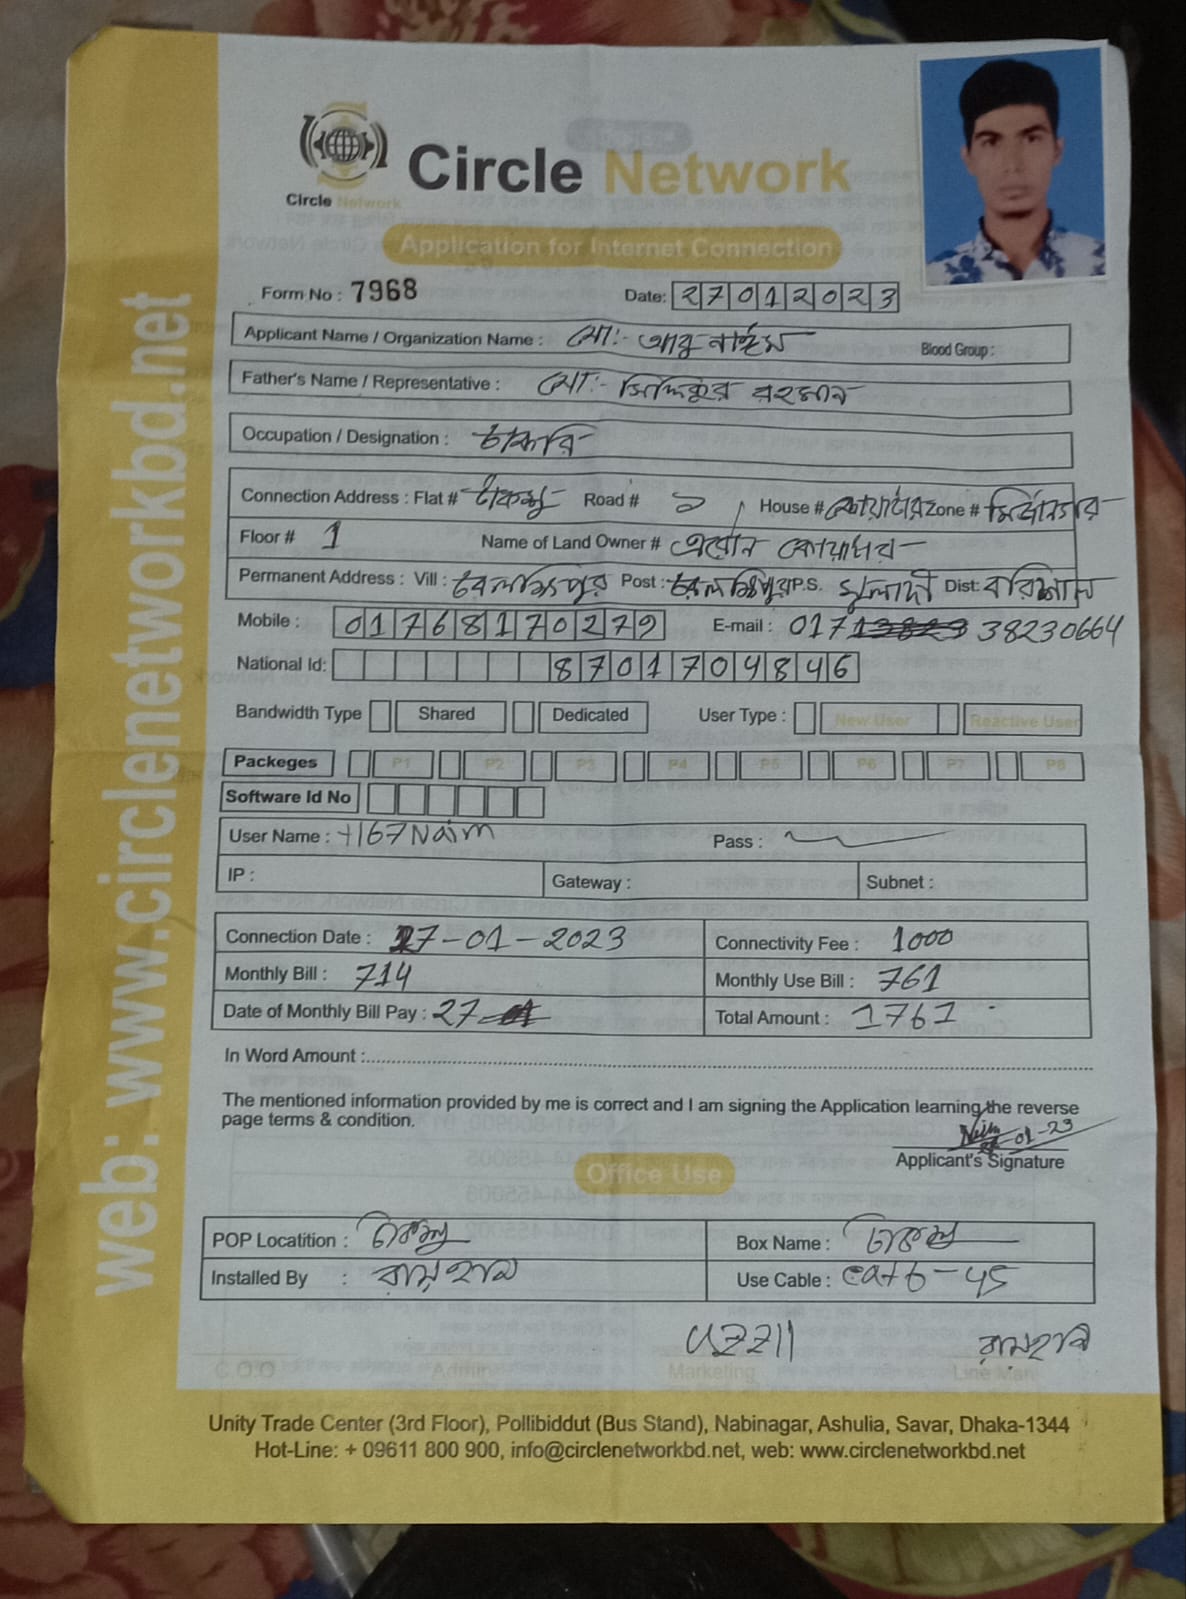 Circle Network
Circle Network
Application for Internet Connection
Form No : 7968 Date: 27012023
Applicant Name / Organization Name : মো:- আবু নাঈম Blood Group :
Father's Name / Representative : মো:- সিদ্দিকুর রহমান
Occupation / Designation : চাকরি
Connection Address : Flat # Road # ১ House # Zone #
Floor # 1 Name of Land Owner #
Permanent Address : Vill : Post : P.S. মুলাদী Dist: বরিশাল
Mobile : 01768170279 E-mail : 017 38230664
National Id: 8701704846
Bandwidth Type Shared Dedicated User Type : New User Reactive User
Packeges P1 P2 P3 P4 P5 P6 P7 P8
Software Id No
User Name : +167Naim Pass :
IP : Gateway : Subnet :
Connection Date : 27-01-2023 Connectivity Fee : 1000
Monthly Bill : 714 Monthly Use Bill : 761
Date of Monthly Bill Pay : 27 Total Amount : 1761
In Word Amount :
The mentioned information provided by me is correct and I am signing the Application learning the reverse
page terms & condition.
Applicant's Signature
Office Use
POP Locatition : Box Name :
Installed By : Use Cable : cat6-45
C.O.O Admin Marketing Line Man
Unity Trade Center (3rd Floor), Pollibiddut (Bus Stand), Nabinagar, Ashulia, Savar, Dhaka-1344
Hot-Line: + 09611 800 900, info@circlenetworkbd.net, web: www.circlenetworkbd.net
web: www.circlenetworkbd.net